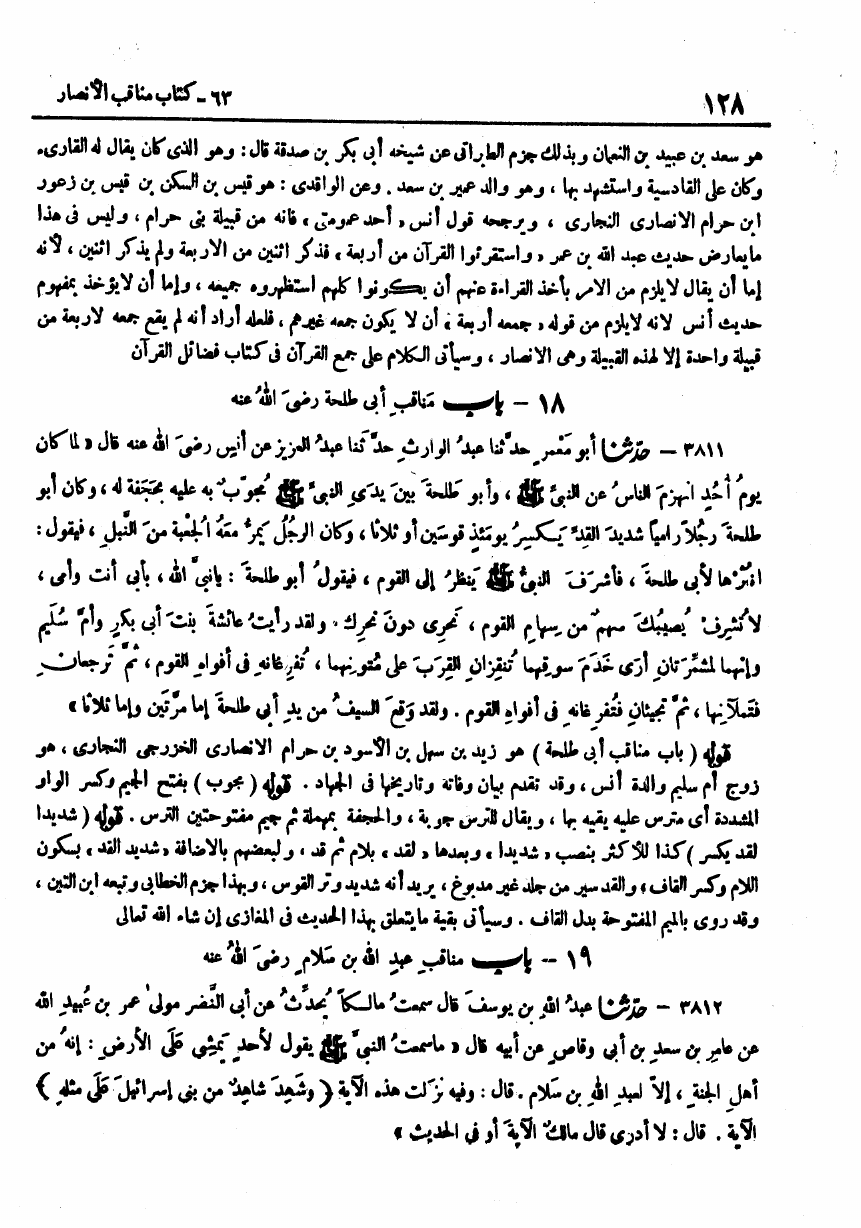 ١٢٨ ٦٣ - كتاب مناقب الأنصار
هو سعد بن عبيد بن النعمان وبذلك جزم الطبرانى عن شيخه أبى بكر بن صدقة قال : وهو الذى كان يقال له القارىء .
وكان على القادسية واستشهد بها ، وهو والد عمير بن سعد . وعن الواقدى : هو قيس بن السكن بن قيس بن زعور
ابن حرام الانصارى النجارى ، ويرجحه قول أنس « أحد عمومتى » فانه من قبيلة بنى حرام ، وليس فى هذا
مايعارض حديث عبد الله بن عمر « واستقرئوا القرآن من أربعة » فذكر اثنين من الاربعة ولم يذكر اثنين ، لأنه
إما أن يقال لايلزم من الامر بأخذ القراءة عنهم أن يكونوا كلهم استظهروه جميعه ، وإما أن لايؤخذ بمفهوم
حديث أنس لانه لايلزم من قوله « جمعه أربعة » أن لا يكون جمعه غيرهم ، فلعله أراد أنه لم يقع جمعه لاربعة من
قبيلة واحدة إلا لهذه القبيلة وهى الانصار ، وسيأتى الكلام على جمع القرآن فى كتاب فضائل القرآن
١٨ - باب مَناقبِ أبى طلحة رضىَ اللهُ عنه
٣٨١١ - حدّثنا أبو مَعْمرٍ حدَّثنا عبدُ الوارثِ حدَّثنا عبدُ العزيز عن أنسٍ رضىَ الله عنه قال « لما كان
يومُ أُحُدٍ انهزمَ الناسُ عن النبىِّ ﷺ ، وأبو طَلحةَ بينَ يدَىِ النبىِّ ﷺ مُجوِّبٌ به عليه بحَجَفة له ، وكان أبو
طلحةَ رجُلاً رامياً شديدَ القِدِّ يَكسِرُ يومَئذٍ قوسَين أو ثلاثا ، وكان الرجُلُ يمرُّ معَهُ الجَعْبة منَ النَّبلِ ، فيقول :
انثُرْها لأبى طلحةَ ، فأشرَفَ النبىُّ ﷺ ينظُرُ إلى القوم ، فيقولُ أبو طلحةَ : يانبىَّ الله ، بأبى أنت وأمى ،
لا تُشرِفْ يُصيبُكَ سهمٌ من سِهامِ القوم ، نَحرِى دونَ نحرِك . ولقد رأيتُ عائشةَ بنتَ أبى بكرٍ وأمَّ سُلَيم
وإنهما لمشمِّرَتان أرَى خَدَمَ سوقِهما تُنقِزانِ القِرَبَ على مُتونِهما ، تُفرِغانِهِ فى أفواهِ القوم ، ثمَّ تَرجِعانِ
فتَملآنِها ، ثمَّ تَجيئانِ فتُفرِغانِهِ فى أفواهِ القوم . ولقد وَقعَ السيفُ من يدِ أبى طلحةَ إما مرَّتَين وإما ثلاثا »
قوله ( باب مناقب أبى طلحة ) هو زيد بن سهل بن الأسود بن حرام الانصارى الخزرجى النجارى ، هو
زوج أم سليم والدة أنس ، وقد تقدم بيان وفاته وتاريخها فى الجهاد . قوله ( مجوب ) بفتح الجيم وكسر الواو
المشددة أى مترس عليه يقيه بها ، ويقال للترس جوبة ، والحجفة بمهملة ثم جيم مفتوحتين الترس . قوله ( شديدا
لقد يكسر ) كذا للأكثر بنصب « شديدا » وبعدها « لقد » بلام ثم قد ، ولبعضهم بالاضافة « شديد القد » بسكون
اللام وكسر القاف ، والقد سير من جلد غير مدبوغ ، يريد أنه شديد وتر القوس ، وبهذا جزم الخطابى وتبعه ابن التين ،
وقد روى بالميم المفتوحة بدل القاف . وسيأتى بقية مايتعلق بهذا الحديث فى المغازى إن شاء الله تعالى
١٩ - باب مناقبِ عبدِ الله بن سَلامٍ رضىَ اللهُ عنه
٣٨١٢ - حدّثنا عبدُ اللهِ بن يوسفَ قال سمعتُ مالكاً يُحدِّثُ عن أبى النَّضر مولىٰ عمر بن عُبيدِ الله
عن عامرِ بن سعدِ بن أبى وقاصٍ عن أبيه قال « ماسمعتُ النبىَّ ﷺ يقول لأحدٍ يَمشِى عَلَى الأرضِ : إنهُ من
أهلِ الجنةِ ، إلاَّ لعبدِ اللهِ بن سَلام . قال : وفيه نزَلت هذه الآية ﴿ وشَهِدَ شاهِدٌ من بنى إسرائيلَ عَلَى مثلهِ ﴾
الآية . قال : لا أدرى قال مالكٌ الآيةَ أو فى الحديث »